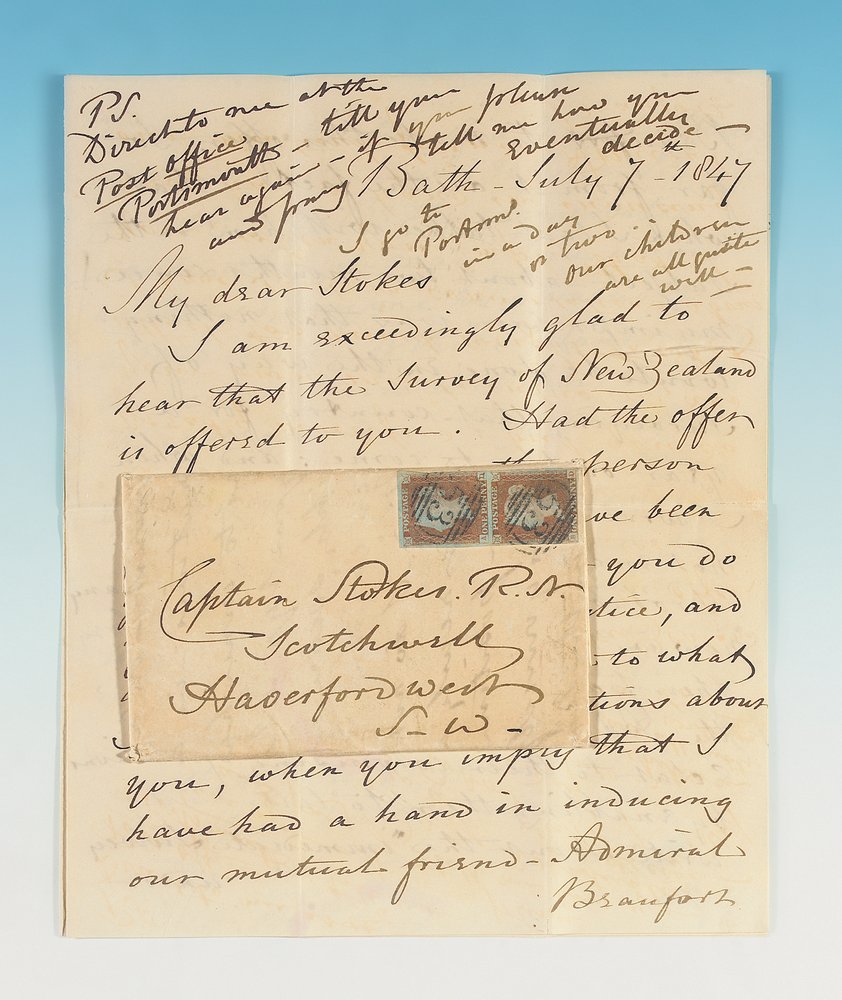 P.S.
Direct to me at the
Post office
Portsmouth - till you
hear again - if you please
and pray tell me how you
eventually
decide -
Bath - July 7th - 1847
I go to
Portsmo.
in a day
or two.
Our children
are all quite
well -
My dear Stokes
I am exceedingly glad to
hear that the Survey of New Zealand
is offered to you. Had the offer
person
ve been
you do
tice, and
to what
tions about
you, when you imply that I
have had a hand in inducing
our mutual friend - Admiral
Beaufort
POSTAGE
ONE PENNY
POSTAGE
Captain Stokes. R.N.
Scotchwell
Haverfordwest
S - W -